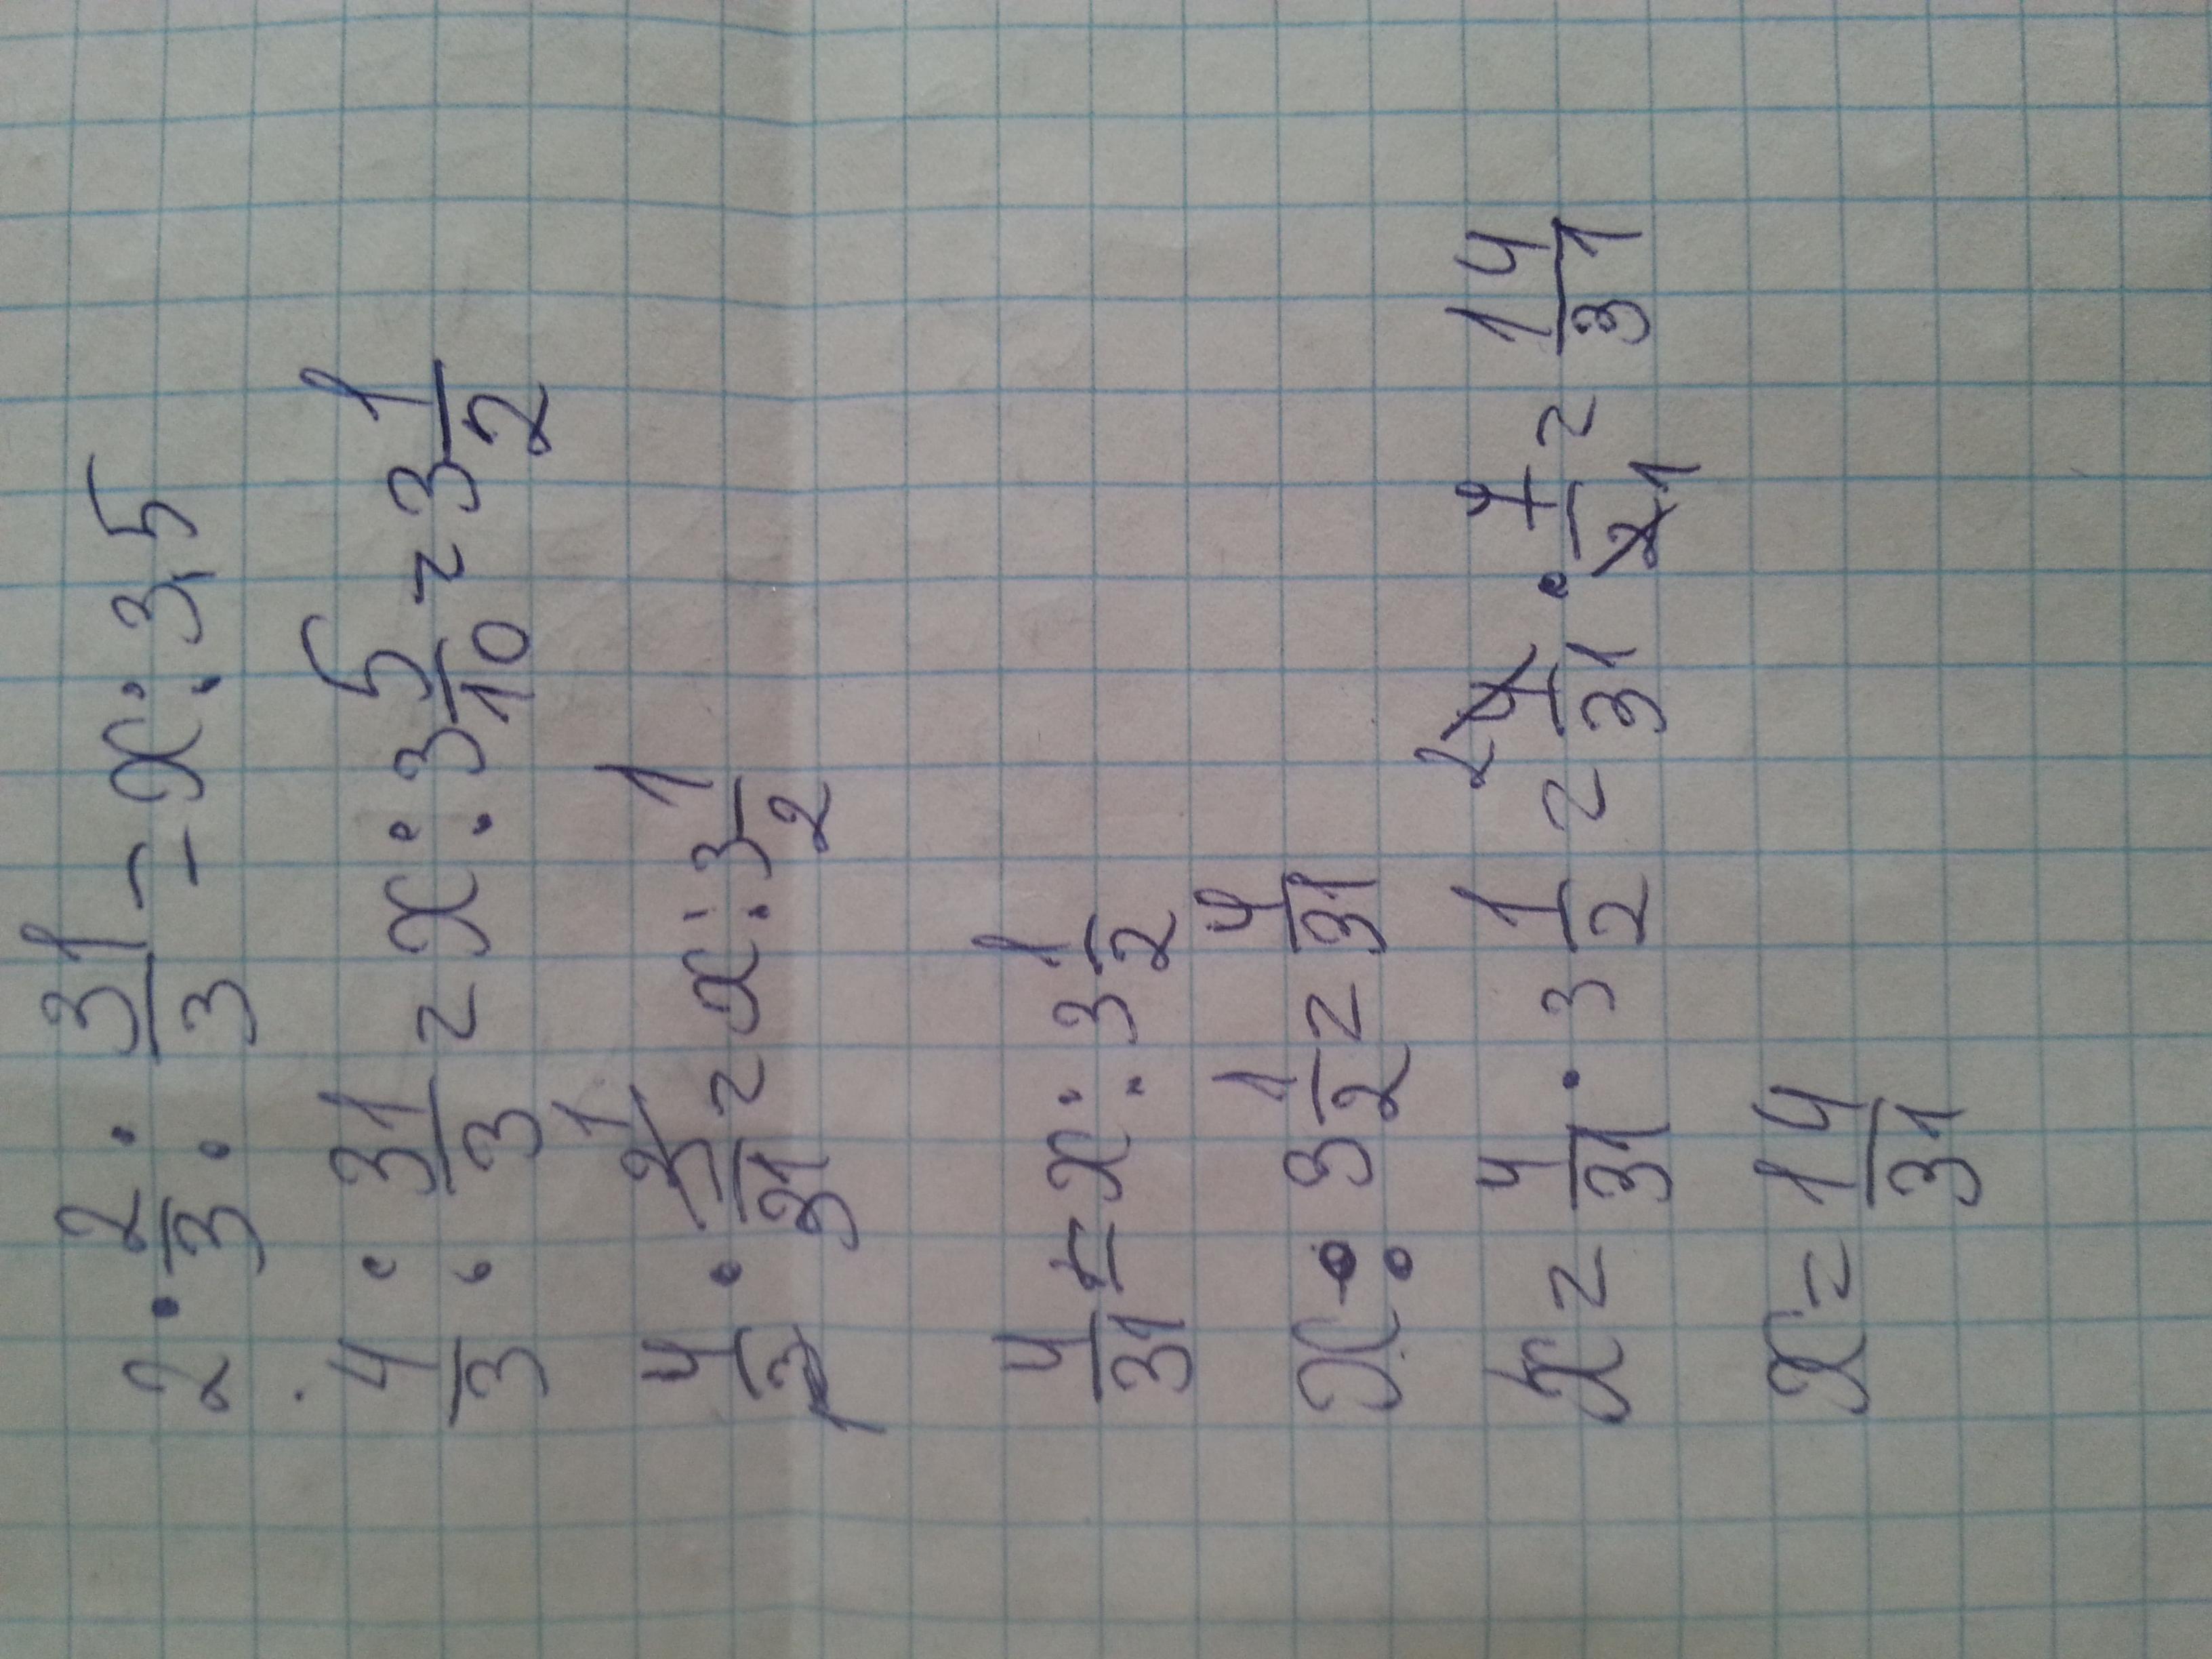 2 · 2/3 : 31/3 = x : 3,5
4/3 : 31/3 = x : 3 5/10 = 3 1/2
4/3 · 3/31 = x : 3 1/2
4/31 = x : 3 1/2
x : 3 1/2 = 4/31
x = 4/31 · 3 1/2 = 4/31 · 7/2 = 14/31
x = 14/31